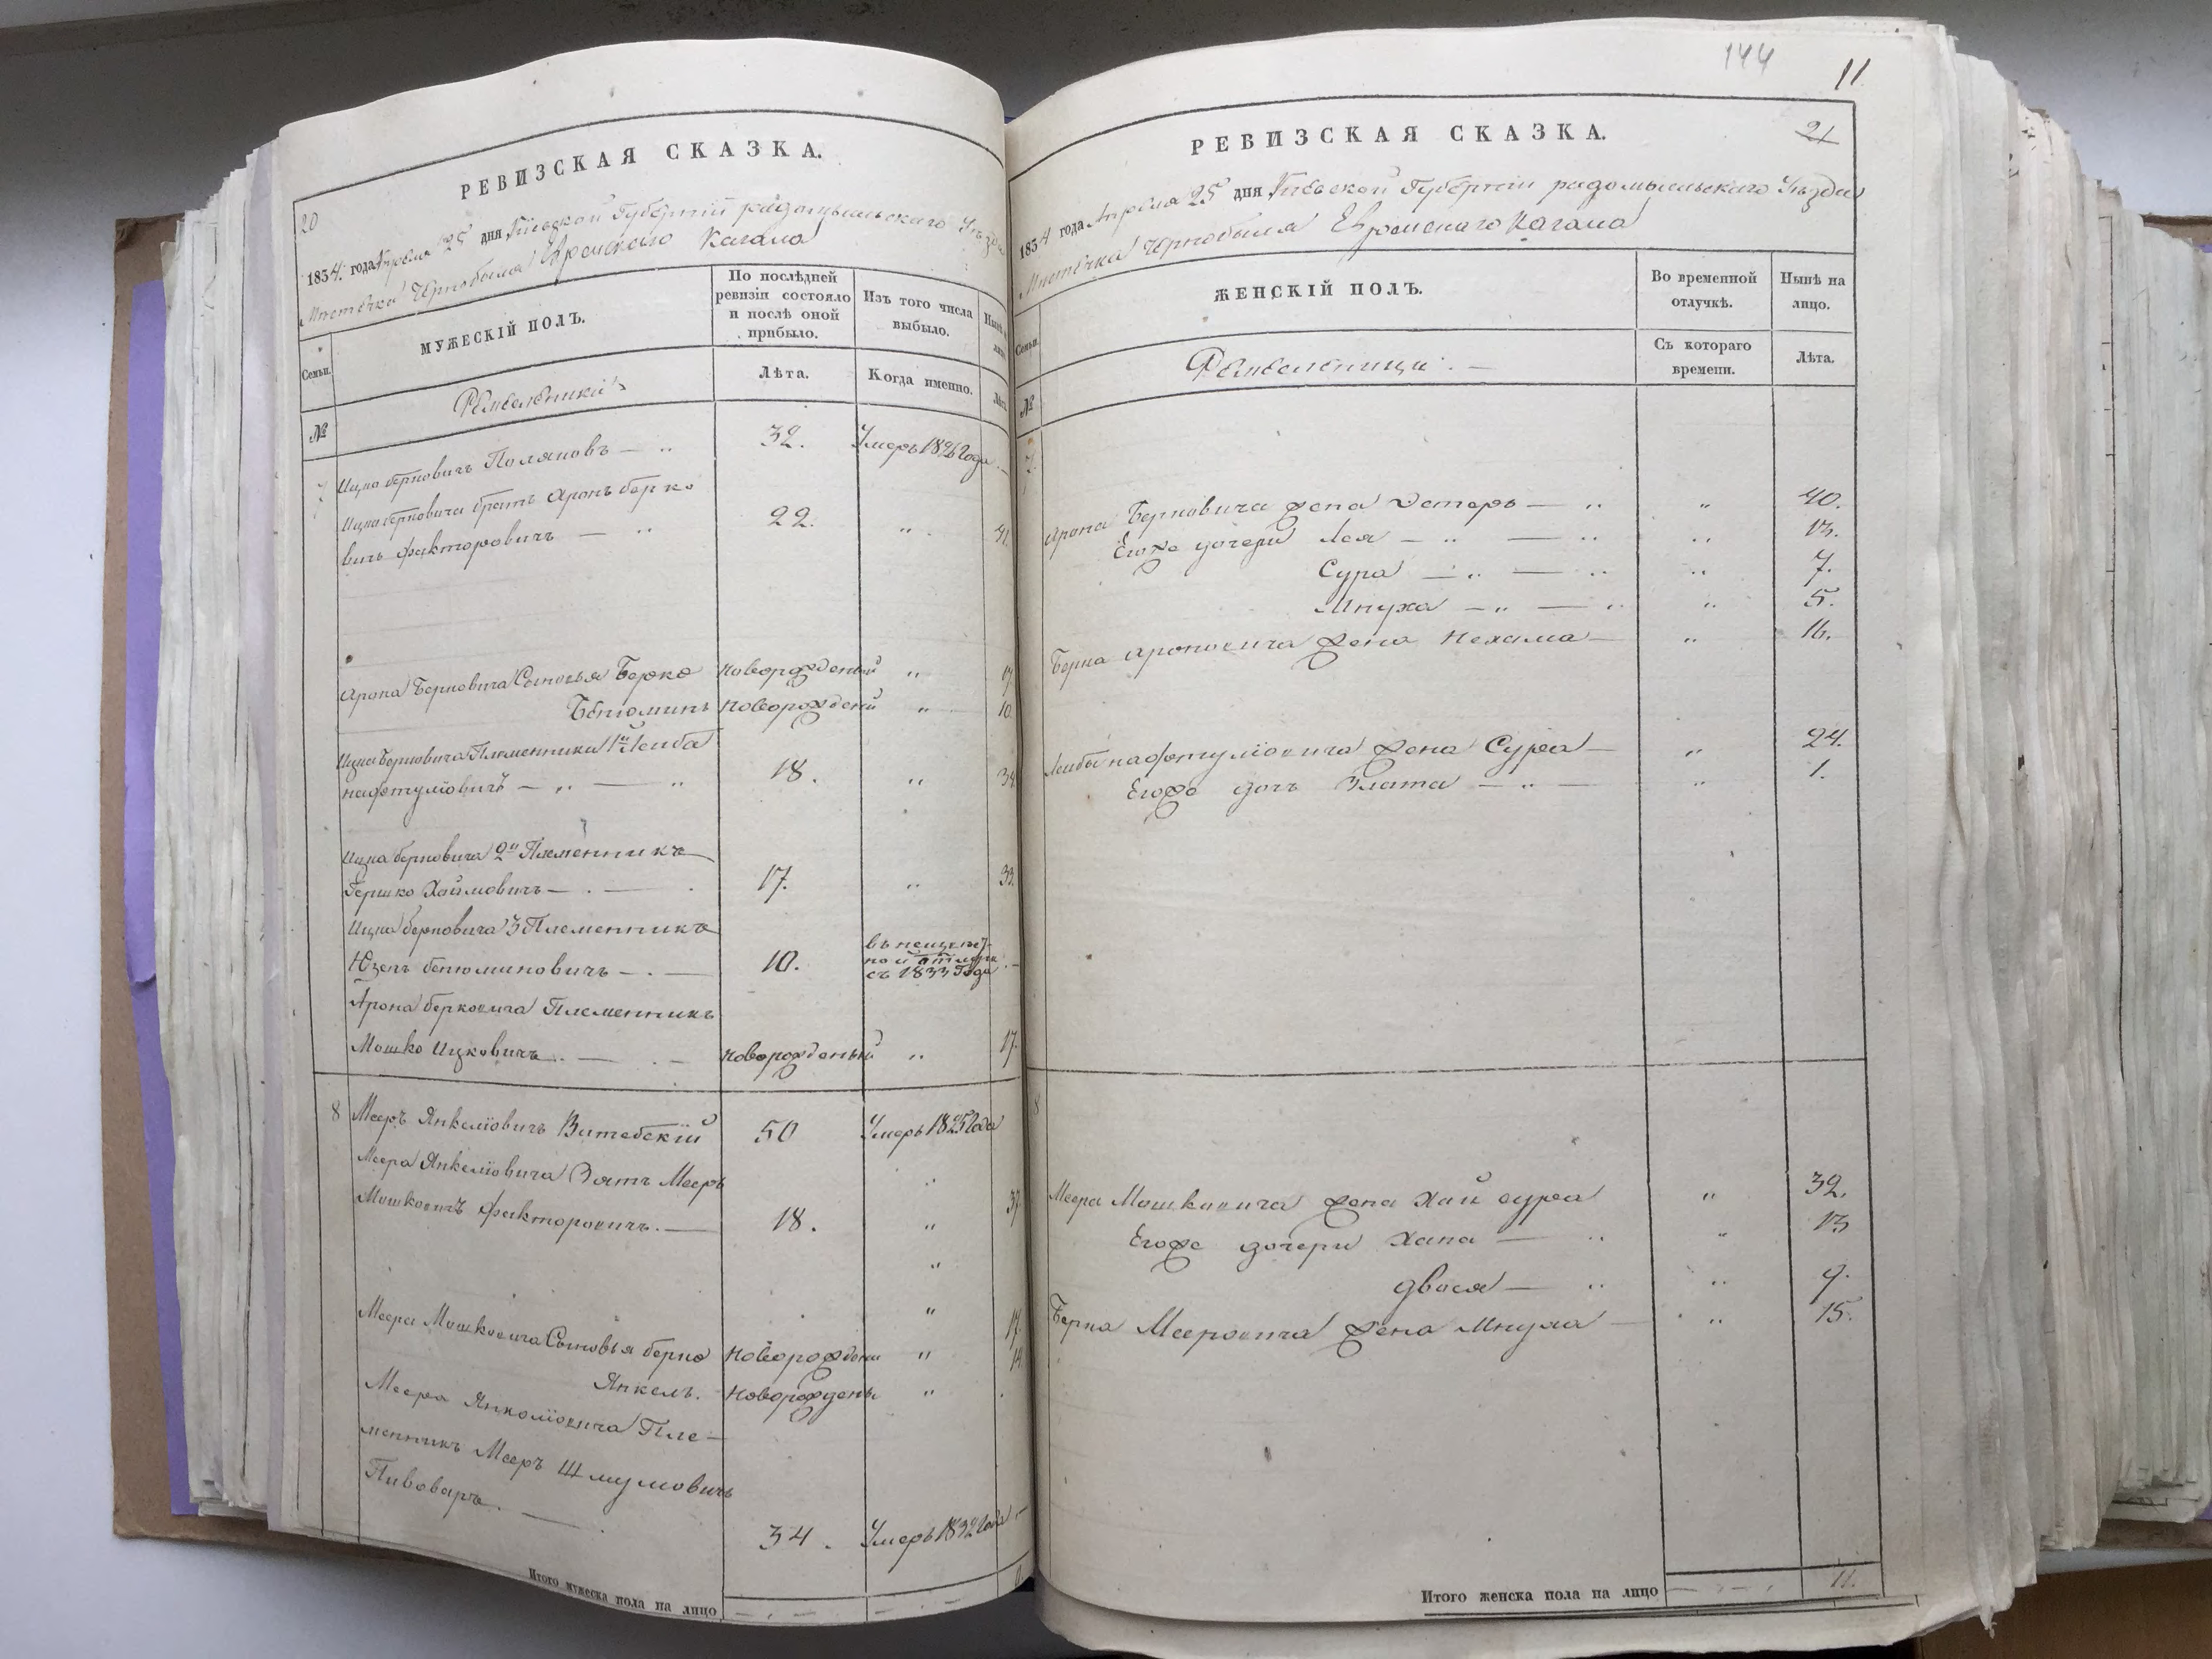 РЕВИЗСКАЯ СКАЗКА.
20
1834 года Апреля 25 дня Кіевской Губерніи радомысльского Уезда
Местечка Чернобыля Евреиского Кагала
Семьи.
МУЖЕСКІЙ ПОЛЪ.
По послѣдней ревизіи состояло и послѣ оной прибыло.
Изъ того числа выбыло.
Нынѣ
№
Лѣта.
Когда именно.
Лѣта
7 Ицко берковичъ Поляковъ — 32. Умеръ 1826 Года —
Ицка берковича братъ Аронъ берко
вичъ факторовичъ — 22. „
Арона Берковича Сыновья Берко новорожденый „
Бенюминъ новорожденый „ 10
Ицка берковича Племенники 1й Лейба
нафтуліовичъ — „ — „ 18. „
Ицка берковича 2й Племенникъ
Гершко Хаимовичъ — 17. „ 33.
Ицка берковича 3 Племенникъ
Юзепъ бенюминовичъ — 10. съ 1833 Года —
Арона берковича Племенникъ
Мошко Ицковичъ — новорожденый „ 17.
8 Мееръ Янкеліовичъ Витебскій 50 Умеръ 1825 Года
Меера Янкеліовича Зять Мееръ „
Мошковичъ факторовичъ. — 18. „ 37
Меера Мошковича Сыновья берко новорожден „ 17.
Янкель. новорожденъ „
Меера Янкеліовича Пле-
менникъ Мееръ Шмулиовичъ
Пивоваръ. — 34. Умеръ 1832 Года —
Итого мужеска пола на лицо
144
11
РЕВИЗСКАЯ СКАЗКА.
21
1834 года Апреля 25 дня Кіевской Губерніи радомысльского Уезда
Местечка Чернобыля Евреиского Кагала
Семьи.
ЖЕНСКІЙ ПОЛЪ.
Во временной отлучкѣ.
Нынѣ на лицо.
№
Съ котораго времени.
Лѣта.
7
Арона Берковича жена Эстеръ — „ 40.
Егоже дочери Лея — „ 13.
Сура — „ 7.
Мнуха — „ 5.
Берка Ароновича жена Нехама — „ 16.
Лейбы нафтуліовича жена Сура — „ 24.
Егоже дочь Злата — „ 1.
8
Меера Мошковича жена Хай сура „ 32.
Егоже дочери Хана — „ 13
двося — „ 9.
Берка Мееровича жена Мнуха — „ 15.
Итого женска пола на лицо 11.